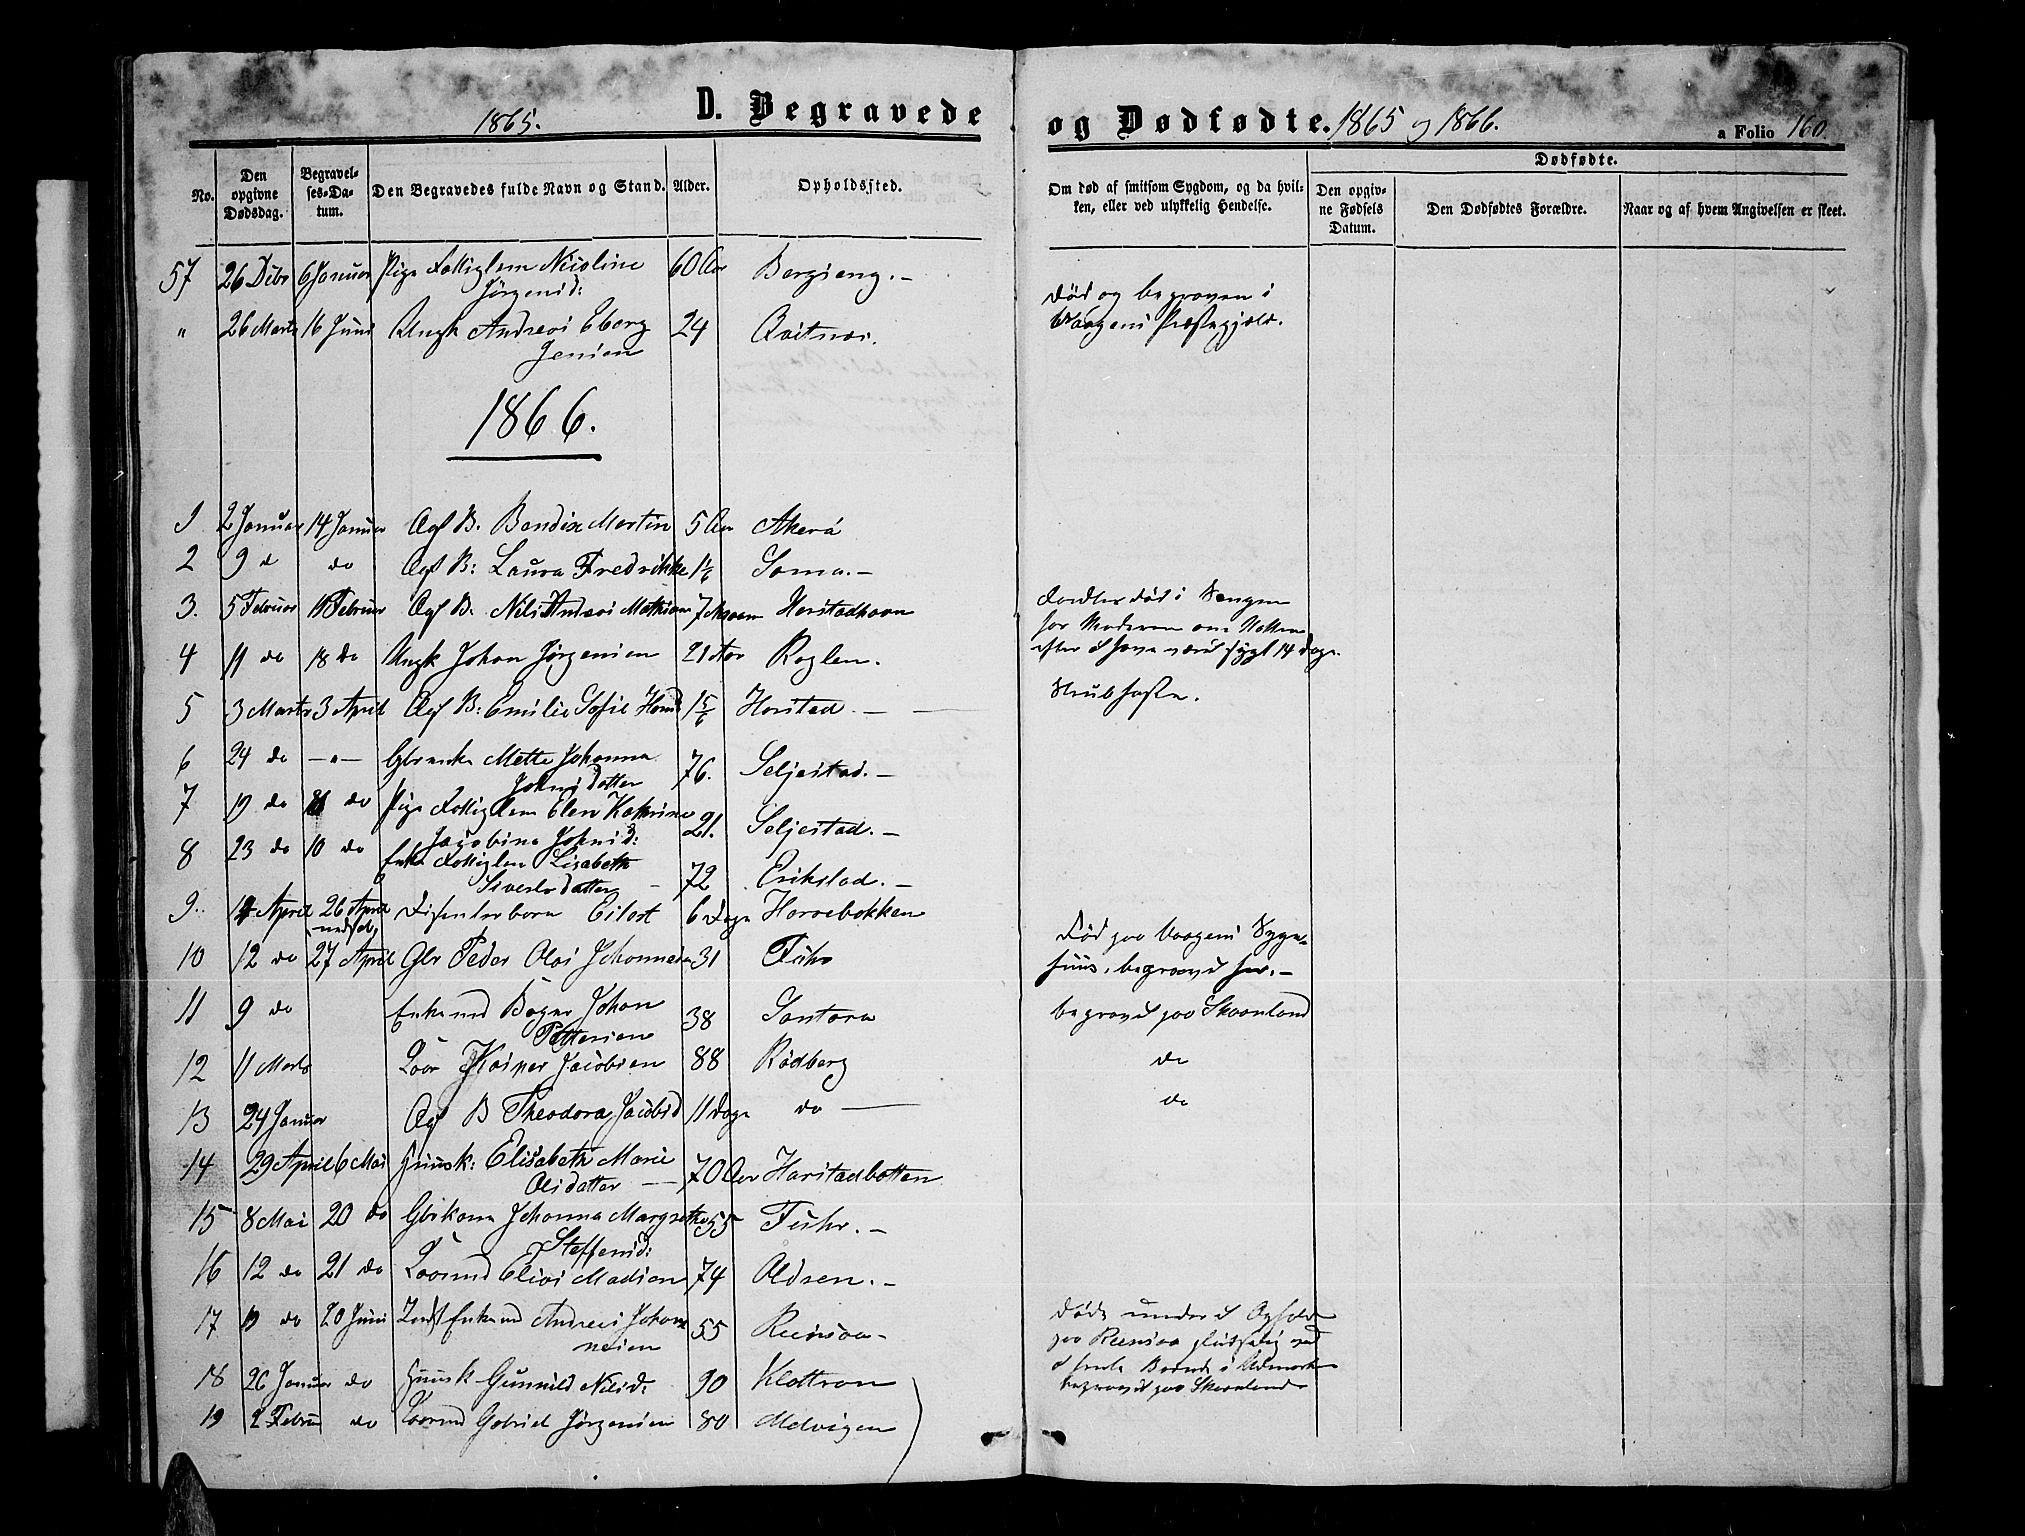 1865. D. Begravede
og Dødfødte. 1865 og 1866. a Folio 160.
No. Den opgivne Dødsdag. Begravelses-Datum. Den Begravedes fulde Navn og Stand. Alder. Opholdssted.
Om død af smitsom Sygdom, og da hvilken, eller ved ulykkelig Hendelse.
Dødfødte.
Den opgivne Fødsels Datum. Den Dødfødtes Forældre. Naar og af hvem Angivelsen er skeet.
57 26 Debr 6 Januar Pige Fattiglem Nicoline 60 Aar Bergseng.-
Jørgensd:
" 26 Marts 16 Juni Ungk Andreas Eberg 24 Qvitnes.
Jensen
død og begraven i
Vaagens Præstegjeld.
1866.
1 2 Januar 14 Januar Ægt B. Bendix Martin 5 Aar Akerö
2 9 d do Ægt B: Laura Fredrikke 1½ Sama.-
3. 5 Februar 11 Februar Ægt B. Nils Andreas Mathias 7 Maan Harstadhavn
4 11 do 18 Do Ungk Johan Jørgensen 21 Aar Roglen.
død i Sengen
hos Moderen om Natten
efter at have været sygt 14 Dage.
5 3 Marts 3 April Ægt B: Emilie Sofie Hansd 1 5/6 Harstad -
Strubehoste.
6 24 do -"- Mette Johanna 76. Seljestad.-
Johnsdatter
7 19 do do Pige Fattiglem Elen Kathrine 21. Seljestad.-
Jacobina Johnsd:
8 23 do 10 do Enke Fattiglem Lisabeth 72 Erikstad.-
Sivertsdatter -
9. 14 April 26 April Dissenterbarn Eilert 6 Dage Harvebakken
nedsat,
10 12 do 27 April Gbr Peder Olai Johannesen 31 Fuhr
Død paa Vaagens Syge-
huus, begravet her.-
11 9 do Enkemd Böger Johan 38 Santorn
Pettersen
begravet paa Skaanland
12 11 Marts Kasper Jacobsen 88 Rødberg
do
13 24 Januar Ægt B Theodora Jacobsd 11 Dage do -
do
14 29 April 6 Mai Huusk: Elisabeth Marie 70 Aar Harstadbotten
Olsdatter -
15 8 Mai 20 do Gbrkone Johanna Margrethe 55 Fuhr.-
Steffensd:
16 12 do 21 do Elias Madsen 74 Aldsen.-
17 19 do 20 Juni Indst Enkemd Andreas Johan 55 Reensaa-
nesen
Døde under et Ophold
paa Reensaa pludselig ved
at hente Brænde i Udmarken
begravet paa Skaanland
18 26 Januar do Huusk Gunnild Nilsd. 90 Klottran
19 2 Februar do Gabriel Jørgensen 80 Melvigen